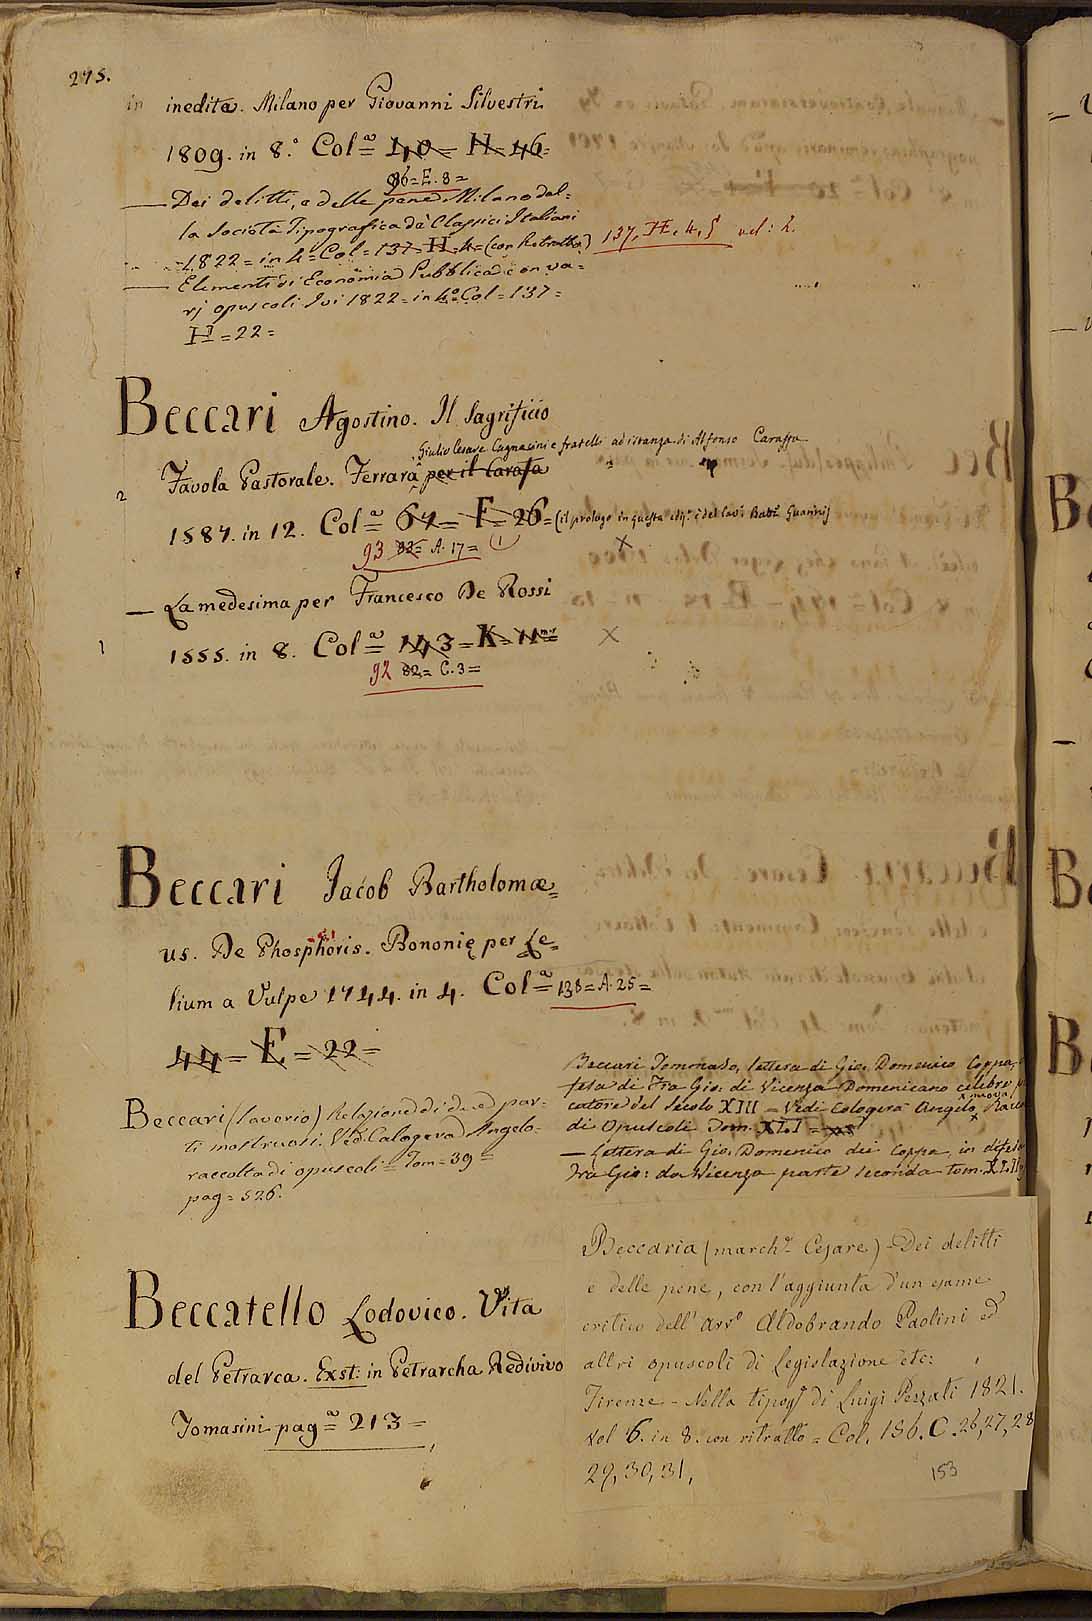 275.
in inedita. Milano per Giovanni Silvestri
1809. in 8.° Col.ª = 40 = H = 46 =
86 = E. 8 =
— Dei delitti, e delle pene Milano dal-
la Società Tipografica de' Classici Italiani
1822 = in 4 = Col = 137 = H. 4 = (con Ritratto) 137, H. 4, 5 vel: 2.
— Elementi di Economia Pubblica con va-
rj opuscoli Ivi 1822 = in 4.° Col = 137 =
H = 22 =
Beccari Agostino. Il Sagrificio
Giulio Cesare Cagnacini e fratelli ad istanza di Alfonso Caraffa
2 Favola Pastorale. Ferrara per il Carafa
1587. in 12. Col.ª = 67 = F = 26 = (il prologo in questa ediz.e è del Cav. Batt.a Guarini)
93 83 = A. 17 = (1) X
— La medesima per Francesco De Rossi
1 1555. in 8. Col.ª = 143 = K = 11 X
92 82 = C. 3 =
Beccari Jacob Bartholomæ=
us. De Phosphoris. Bononię per Le=
lium a Vulpe 1744. in 4. Col.ª = 138 = A. 25 =
44 = E = 22 =
Beccari (Saverio) Relazione di due par-
ti mostruosi. Ved. Calogera Angelo =
raccolta di opuscoli = Tom = 39 =
pag = 526.
Beccatello Lodovico. Vita
del Petrarca. Exst: in Petrarcha Redivivo
Tomasini pag.ª = 213 =
Beccari Tommaso, lettera di Gio. Domenico Coppa,
fesa di Fra Gio: di Vicenza Domenicano celebre
catore del secolo XIII = Vedi Cologerà Angelo, nuova Racc
di Opuscoli Tom. XL.I =
— Lettera di Gio. Domenico dei Coppa in difesa
Fra Gio: da Vicenza parte seconda tom. XLII
Beccaria (march.e Cesare) - Dei delitti
e delle pene, con l'aggiunta d'un esame
critico dell' avv.o Aldobrando Paolini ed
altri opuscoli di Legislazione etc:
Firenze - Nella tipog.a di Luigi Pezzati 1821.
Vol 6. in 8. con ritratto = Col. 156. C. 26, 27, 28
29, 30, 31,
153